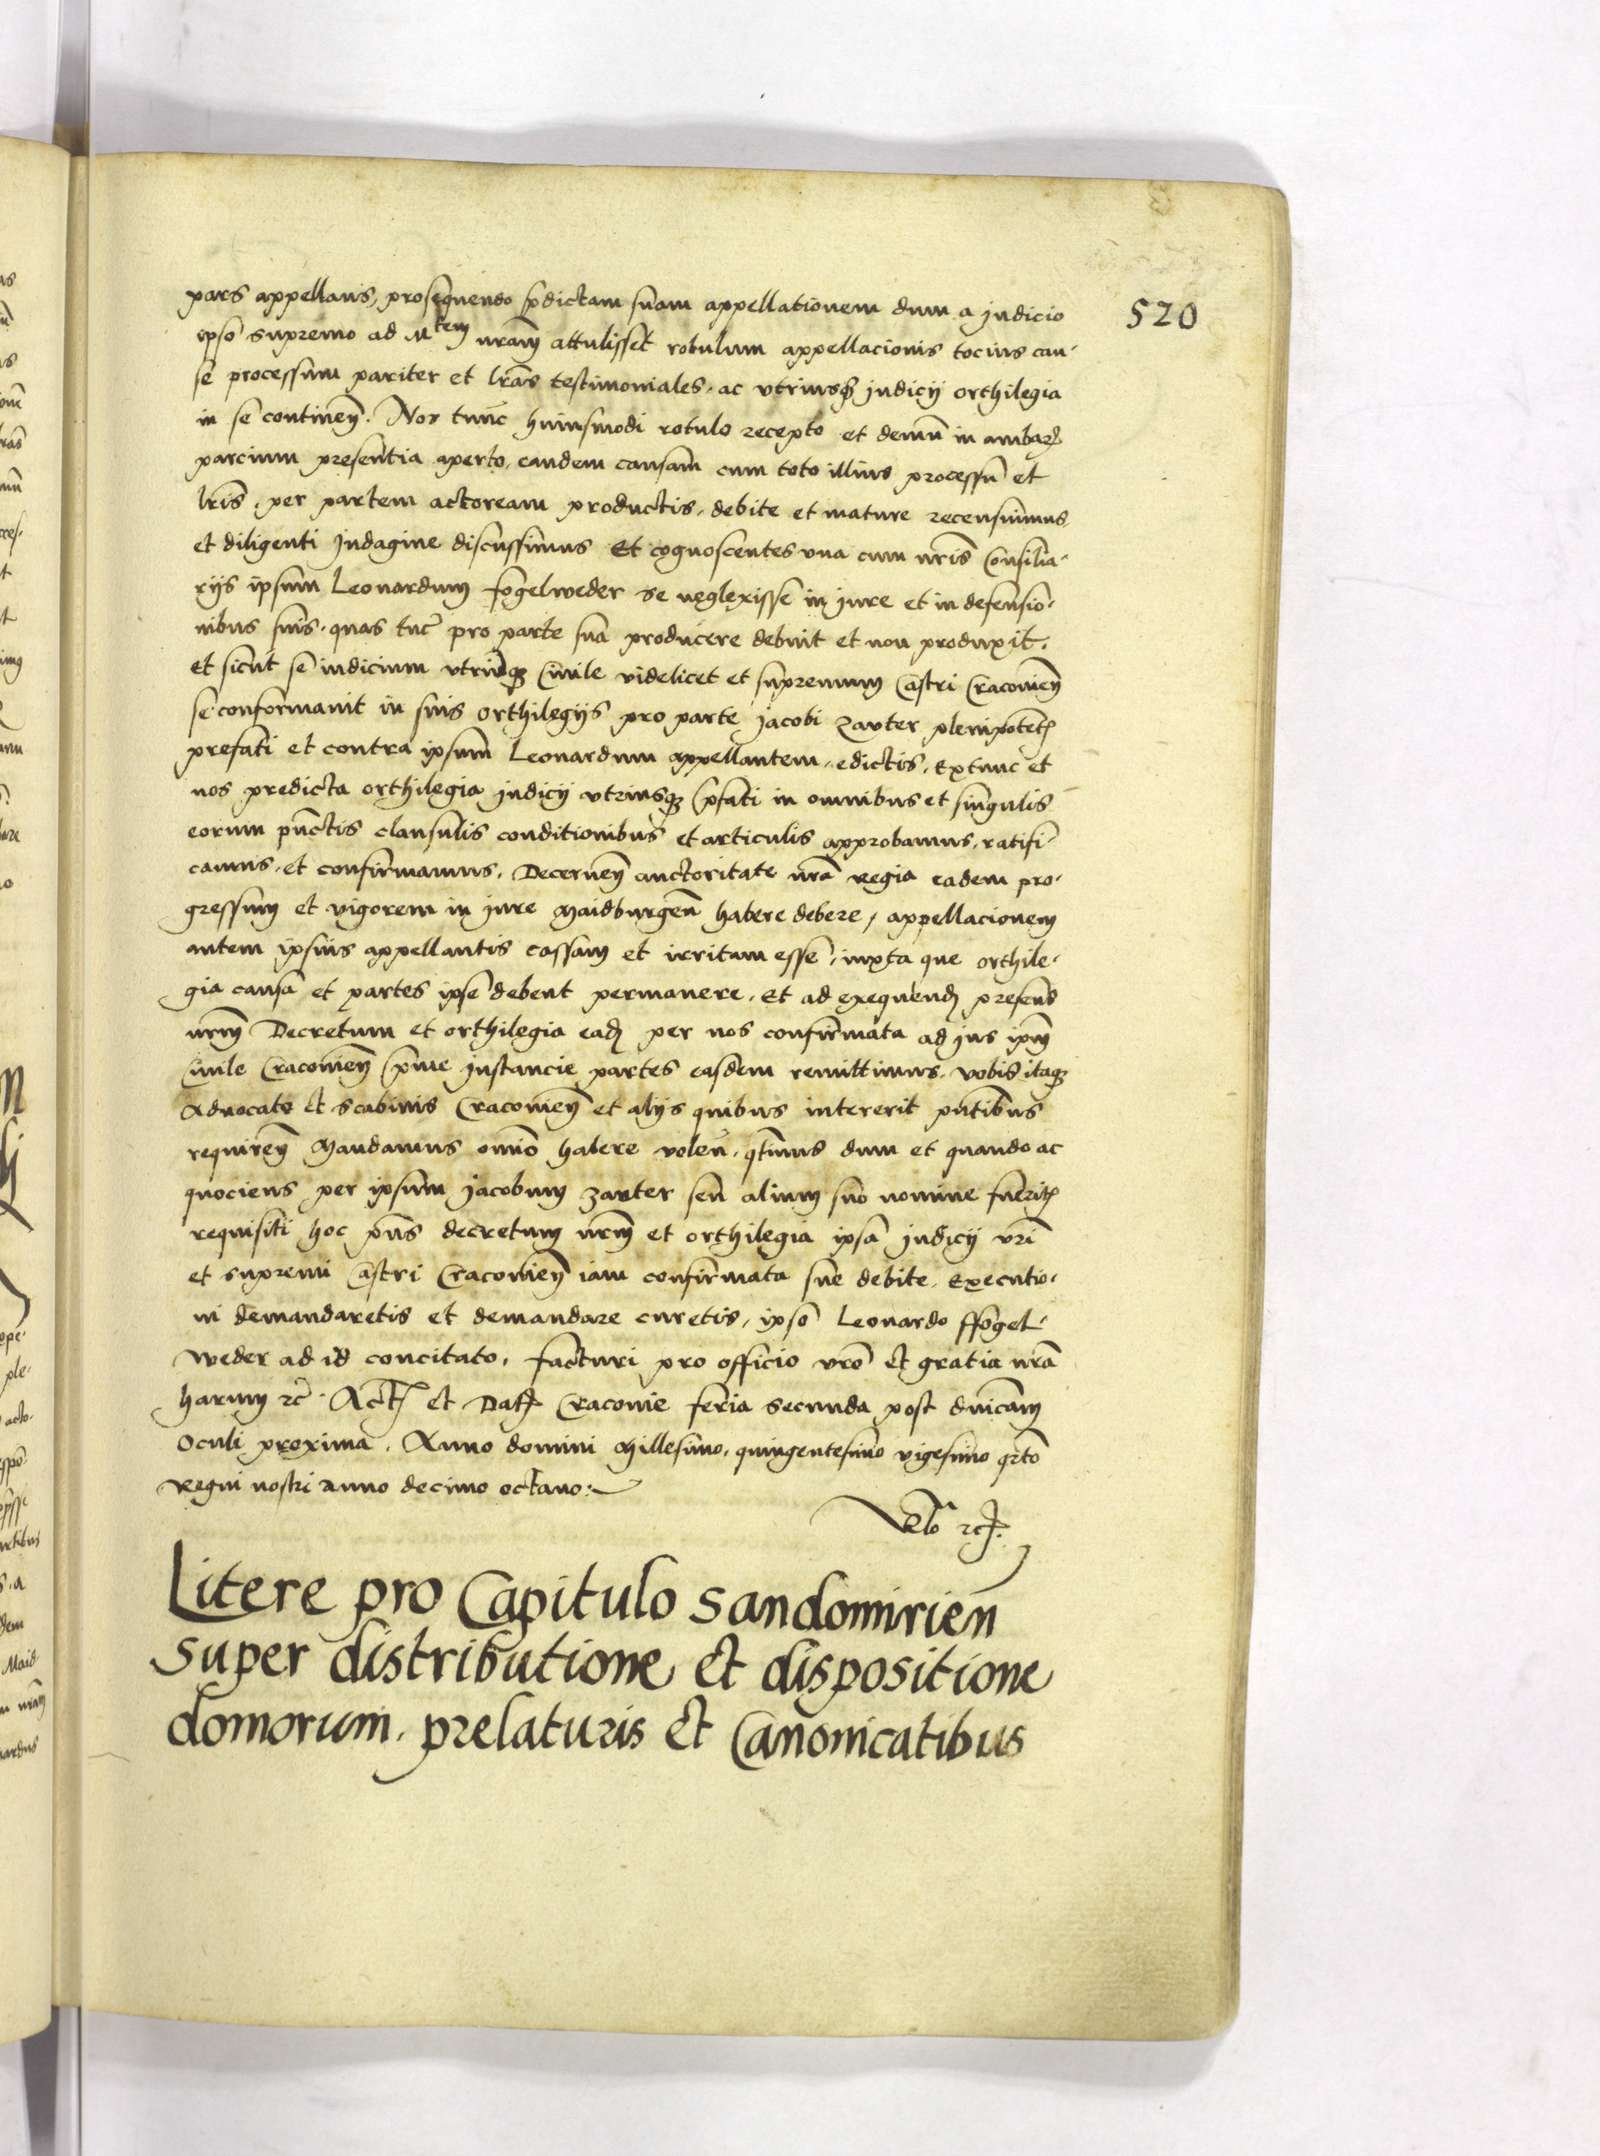 520
pars appellans, prosequendo p̄dictam suam appellationem dum a judicio
ipso supremo ad M^tem nr̄am attulisset rotulum appellacionis tocius cau-
se processum pariter et lr̄as testimoniales, ac utriusq̧ judicij orthilegia
in se continen̄. Nos tunc huiusmodi rotulo recepto et demū in ambar̄
parcium presentia aperto, eandem causam cum toto illius processu et
lr̄is, per partem actoream productis, debite et mature recensuimus
et diligenti Indagine discussimus Et cognoscentes una cum nr̄is Consilia-
rijs ipsum Leonardum fogelweder se neglexisse in jure et in defensio-
nibus suis, quas tūc pro parte sua producere debuit et non produxit,
et sicut se iudicium utrumq̧ Ciuile videlicet et supremum Castri Cracouien̄
se conformauit in suis orthilegijs pro parte Jacobi Zauter plenipotēt̄
prefati et contra ipsum Leonardum appellantem, edictis, Extunc et
nos predicta orthilegia judicij utriusq̧ p̄fati in omnibus et singulis
eorum pūctis clausulis conditionibus et articulis approbamus, ratifi-
camus, et confirmamus, Decernen̄ auctoritate nr̄a regia eadem pro-
gressum et vigorem in jure Maidburgen̄ habere debere, appellacionem
autem ipsius appellantis cassam et irritam esse, iuxta que orthile-
gia causa et partes ipse debent permanere, Et ad exequend̄ presens
nr̄m Decretum et orthilegia ead̄ per nos confirmata ad jus ipm̄
Ciuile Cracouien̄ p̄me instancie partes easdem remittimus. Vobis itaq̧
Aduocato et Scabinis Cracouien̄ et alijs quibus intererit pn̄tibus
requiren̄ Mandamus om̄io habere volen̄, q̄tinus dum et quando ac
quociens per ipsum Jacobum Zauter seu alium suo nomine fuerit̄
requisiti hoc pn̄s decretum nr̄m et orthilegia ipsa judicij vr̄i
et supremi Castri Cracouien̄ iam confirmata sue debite Executio-
ni demandaretis et demandare curetis, ipso Leonardo ffogel-
weder ad id concitato, facturi pro officio vr̄o et gratia nr̄a
harum rc̄. Act̄ et Dat̄ Cracouie feria secunda post dn̄icam
Oculi proxima. Anno domini Millesimo, quingentesimo vigesimo q̄rto
Regni nostri anno decimo octauo:
Rlo rc̄.
Litere pro Capitulo Sandomirien̄
super distributione et dispositione
domorum, prelaturis et Canonicatibus